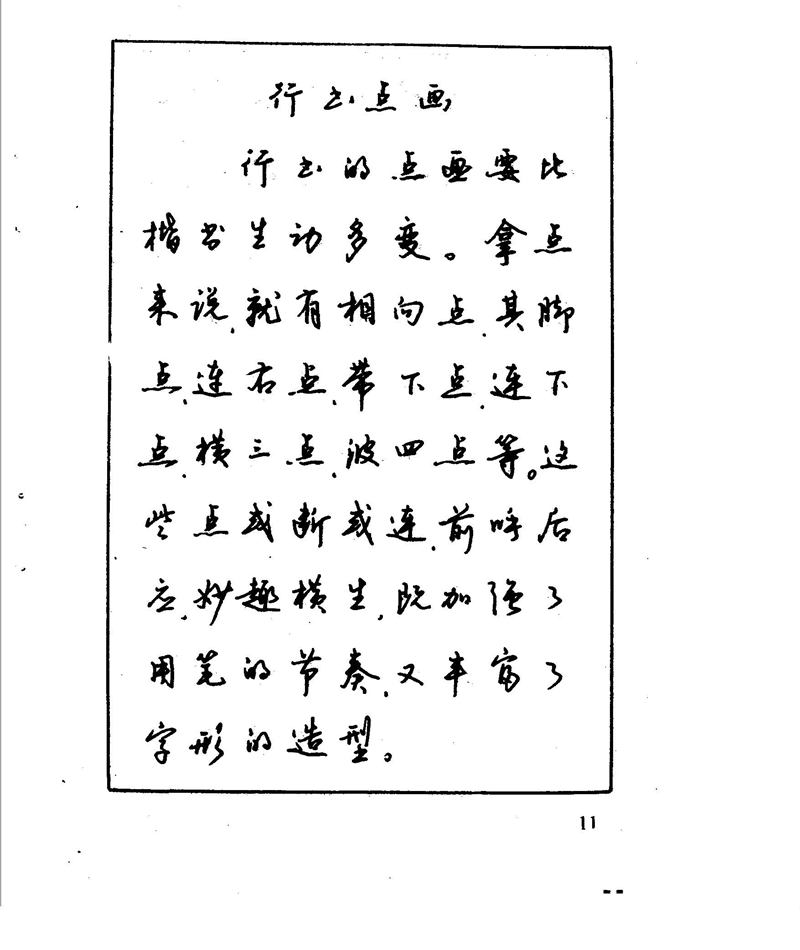 行书点画
行书的点画要比
楷书生动多变。拿点
来说,就有相向点,其脚
点,连右点,带下点,连下
点,横三点,波四点等。这
些点或断或连,前呼后
应,妙趣横生,既加强了
用笔的节奏,又丰富了
字形的造型。
11